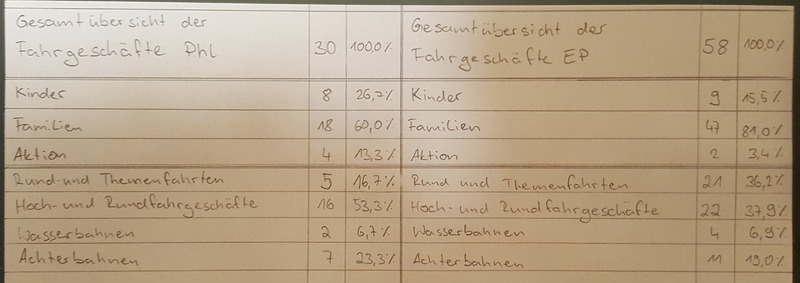 Gesamtübersicht der Gesamtübersicht der
Fahrgeschäfte Phl 30 100,0% Fahrgeschäfte EP 58 100,0%
Kinder 8 26,7% Kinder 9 15,5%
Familien 18 60,0% Familien 47 81,0%
Aktion 4 13,3% Aktion 2 3,4%
Rund-und Themenfahrten 5 16,7% Rund und Themenfahrten 21 36,2%
Hoch- und Rundfahrgeschäfte 16 53,3% Hoch- und Rundfahrgeschäfte 22 37,9%
Wasserbahnen 2 6,7% Wasserbahnen 4 6,9%
Achterbahnen 7 23,3% Achterbahnen 11 19,0%